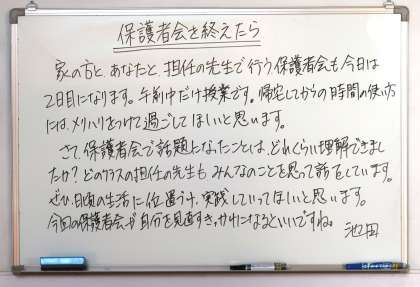 保護者会を終えたら
家の方と、あなたと、担任の先生で行う保護者会も今日は
2日目になります。午前中だけ授業です。帰宅してからの時間の使い方
には、メリハリをつけて過ごしてほしいと思います。
さて、保護者会で話題となったことは、どれくらい理解できまし
たか?どのクラスの担任の先生もみんなのことを思って話をしています。
ぜひ、日頃の生活に位置づけ、実践していってほしいと思います。
今回の保護者会が自分を見直すきっかけになるといいですね。
池田